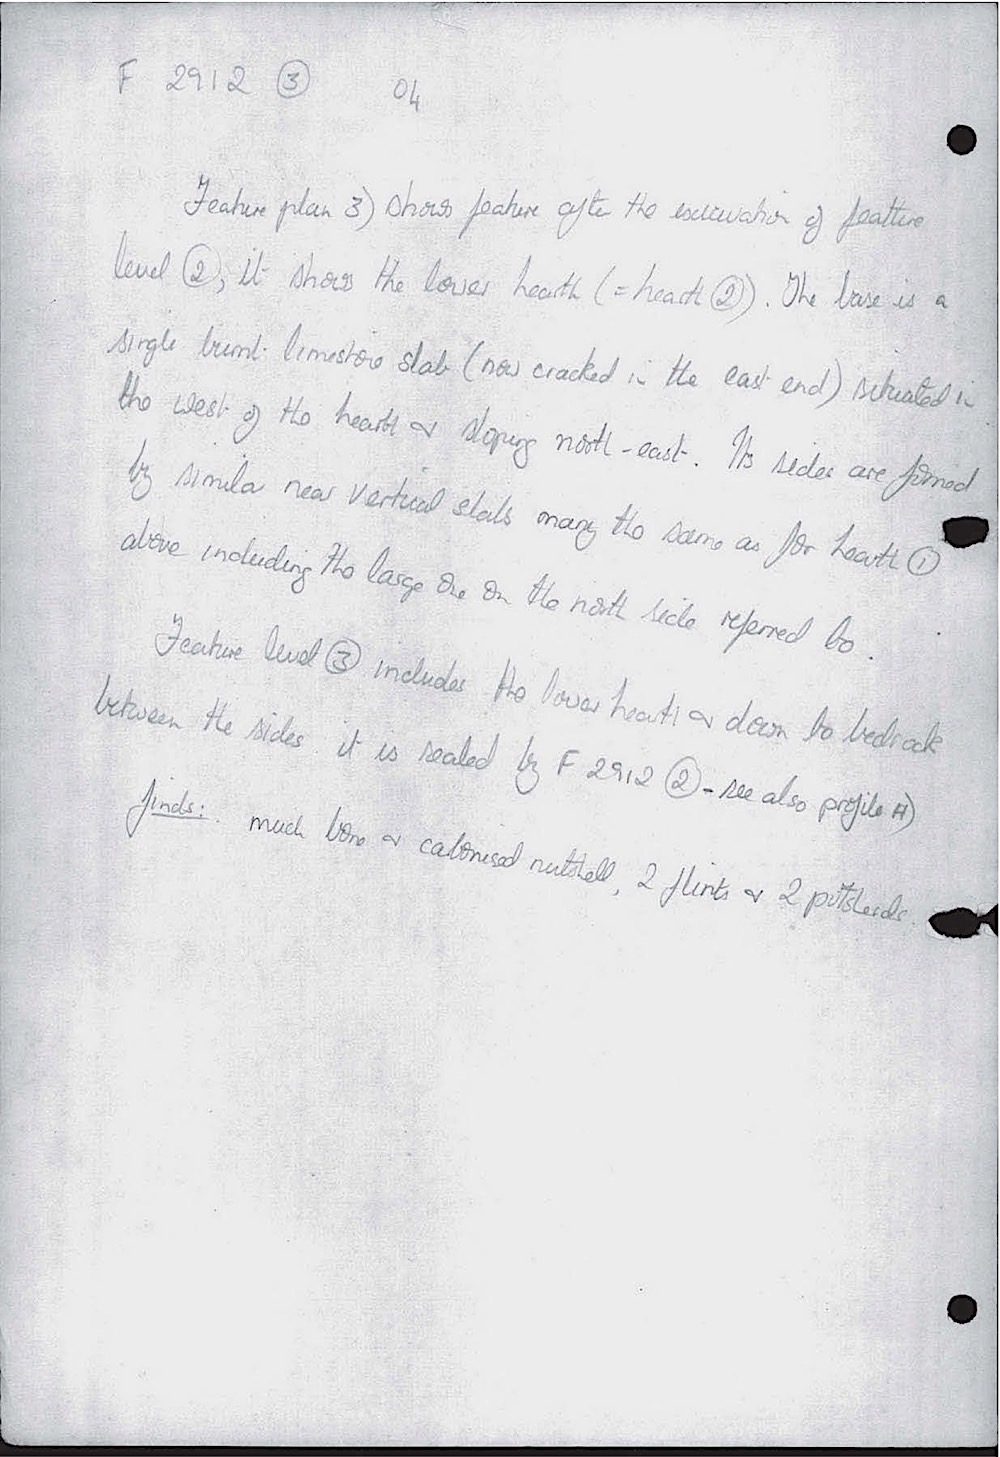 F 2912 ③ 04
Feature plan 3) shows feature after the excavation of feature
level ②, it shows the lower hearth (= hearth ②). The base is a
single burnt limestone slab (now cracked in the east end) situated in
the west of the hearth & sloping north-east. Its sides are formed
by similar near vertical slabs many the same as for hearth ①
above including the large one on the north side referred to.
Feature level ③ includes the lower hearth & down to bedrock
between the sides. it is sealed by F 2912 ② - see also profile A)
finds: much bone & carbonised nutshell, 2 flints & 2 potsherds.